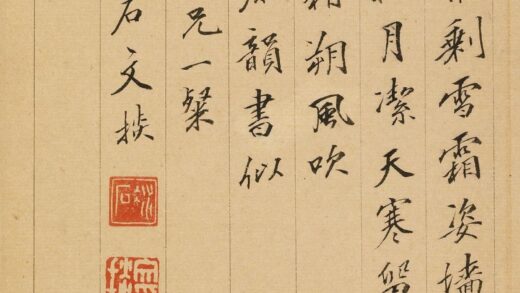 剩雪霜姿墻
月潔天寒留
朔風吹
韻書似
兄一粲
石文掞